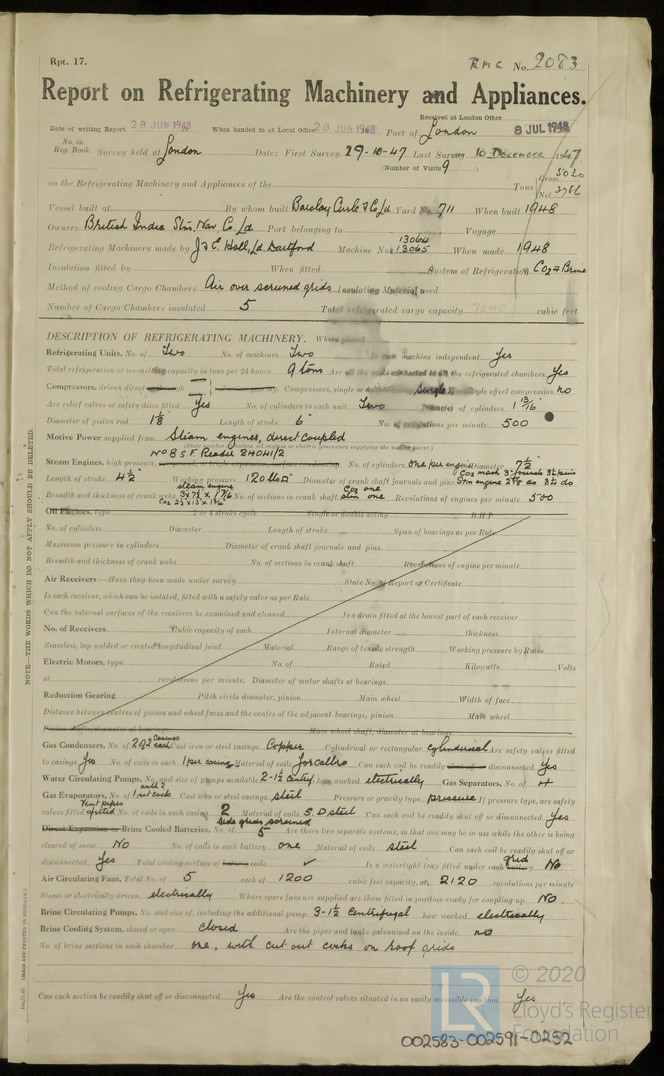 Rpt. 17.
R M C No. 2083
Report on Refrigerating Machinery and Appliances.
Received at London Office
Date of writing Report 28 JUN 1948 When handed in at Local Office 28 JUN 1948 Port of London 8 JUL 1948
No. in Reg. Book. Survey held at London Date: First Survey 29-10-47 Last Survey 10 DECEMBER 1947
(Number of Visits 9
on the Refrigerating Machinery and Appliances of the Tons Gross 5020 Net 2766
Vessel built at By whom built Barclay Curle & Co Ld Yard No. 711 When built 1948
Owners British India Stm. Nav. Co. Ld Port belonging to Voyage
Refrigerating Machinery made by J & E. Hall, Ld. Dartford Machine Nos 13064 13065 When made 1948
Insulation fitted by When fitted System of Refrigeration CO2 & Brine
Method of cooling Cargo Chambers Air over screened grids Insulating Material used
Number of Cargo Chambers insulated 5 Total refrigerated cargo capacity cubic feet
DESCRIPTION OF REFRIGERATING MACHINERY. Where placed
Refrigerating Units, No. of Two No. of machines Two Is each machine independent Yes
Total refrigeration or ice-melting capacity in tons per 24 hours 9 tons Are all the units connected to all the refrigerated chambers Yes
Compressors, driven direct Compressors, single or double Single, ple effect compression no
Are relief valves or safety discs fitted Yes No. of cylinders to each unit Two Diameter of cylinders 1 13/16"
Diameter of piston rod 1 1/8" Length of stroke 6" No. of revolutions per minute 500
Motive Power supplied from Steam engines, direct coupled
No 8 S F Reader 24041/2
Steam Engines, high pressure, No. of cylinders One per engine Diameter 7 1/2"
Length of stroke 4 1/2" Working pressure 120 lbs Diameter of crank shaft journals and pins
Breadth and thickness of crank webs No. of sections in crank shaft CO2 one stm one Revolutions of engines per minute 500
Oil Engines, type 2 or 4 stroke cycle Single or double acting B.H.P.
No. of cylinders Diameter Length of stroke Span of bearings as per Rule
Maximum pressure in cylinders Diameter of crank shaft journals and pins
Breadth and thickness of crank webs No. of sections in crank shaft Revolutions of engine per minute
Air Receivers:—Have they been made under survey State No. of Report or Certificate
Is each receiver, which can be isolated, fitted with a safety valve as per Rule
Can the internal surfaces of the receivers be examined and cleaned Is a drain fitted at the lowest part of each receiver
No. of Receivers Cubic capacity of each Internal diameter thickness
Seamless, lap welded or riveted longitudinal joint Material Range of tensile strength Working pressure by Rules
Electric Motors, type No. of Rated Kilowatts Volts
at revolutions per minute. Diameter of motor shafts at bearings
Reduction Gearing Pitch circle diameter, pinion Main wheel Width of face
Distance between centres of pinion and wheel faces and the centre of the adjacent bearings, pinion Main wheel
Pinion shafts, diameter at bearings Main wheel shaft, diameter at bearings
Gas Condensers, No. of 2 of 2 casings each Cast iron or steel casings Copper Cylindrical or rectangular cylindrical Are safety valves fitted
to casings Yes No. of coils in each 1 per casing Material of coils Jorcalbro Can each coil be readily shut off or disconnected Yes
Water Circulating Pumps, No. and size of pumps available 2-1 1/2 centry. how worked electrically Gas Separators, No. of 4
Gas Evaporators, No. of 1 with 2 Cast iron or steel casings steel Pressure or gravity type pressure If pressure type, are safety
valves fitted Vent pipes fitted No. of coils in each casing 2 Material of coils S. D steel Can each coil be readily shut off or disconnected Yes
Side grids screened
Direct Expansion or Brine Cooled Batteries, No. of 5 Are there two separate systems, so that one may be in use while the other is being
cleared of snow No No. of coils in each battery one Material of coils steel Can each coil be readily shut off or
disconnected Yes Total cooling surface of battery coils ✓ Is a watertight tray fitted under each battery grid No
Air Circulating Fans, Total No. of 5 each of 1200 cubic feet capacity, at 2120 revolutions per minute
Steam or electrically driven electrically Where spare fans are supplied are these fitted in position ready for coupling up No
Brine Circulating Pumps, No. and size of, including the additional pump 3-1 1/2 Centrifugal how worked electrically
Brine Cooling System, closed or open closed Are the pipes and tanks galvanised on the inside no
No. of brine sections in each chamber one, with cut out cocks on roof grids
Can each section be readily shut off or disconnected Yes Are the control valves situated in an easily accessible position Yes
NOTE.—THE WORDS WHICH DO NOT APPLY SHOULD BE DELETED.
(MADE AND PRINTED IN ENGLAND.)
LR
© 2020
Lloyd's Register
Foundation
002583-002591-0252